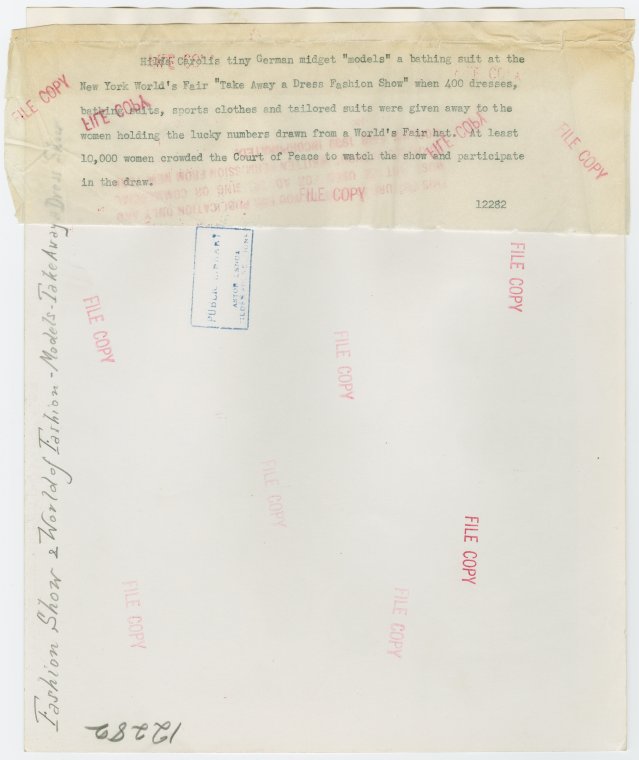 Hilda Carolis tiny German midget "models" a bathing suit at the
New York World's Fair "Take Away a Dress Fashion Show" when 400 dresses,
bathing suits, sports clothes and tailored suits were given away to the
women holding the lucky numbers drawn from a World's Fair hat. At least
10,000 women crowded the Court of Peace to watch the show and participate
in the draw.
12282
FILE COPY
FILE COPY
FILE COPY
FILE COPY
FILE COPY
FILE COPY
FILE COPY
PUBLIC LIBRARY
ASTOR LENOX
FILE COPY
FILE COPY
FILE COPY
FILE COPY
FILE COPY
FILE COPY
FILE COPY
Fashion Show & World of Fashion - Models - Take Away a Dress Show
12282